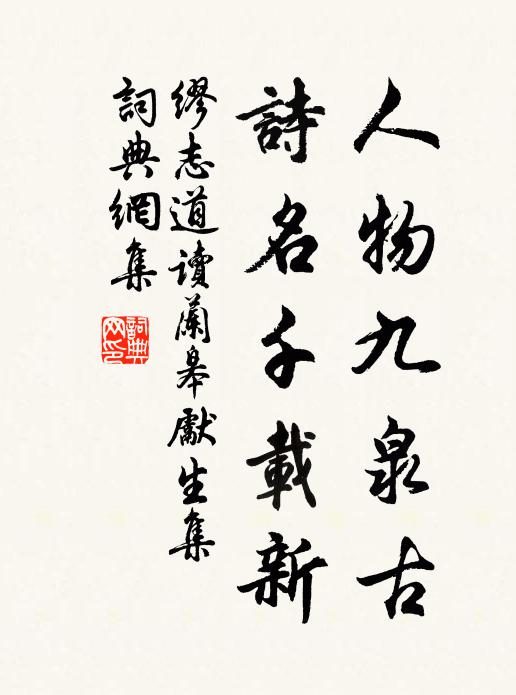 人物九泉古
詩名千載新
繆志道讀蘭皋獻生集
詞典網集
詞典网印